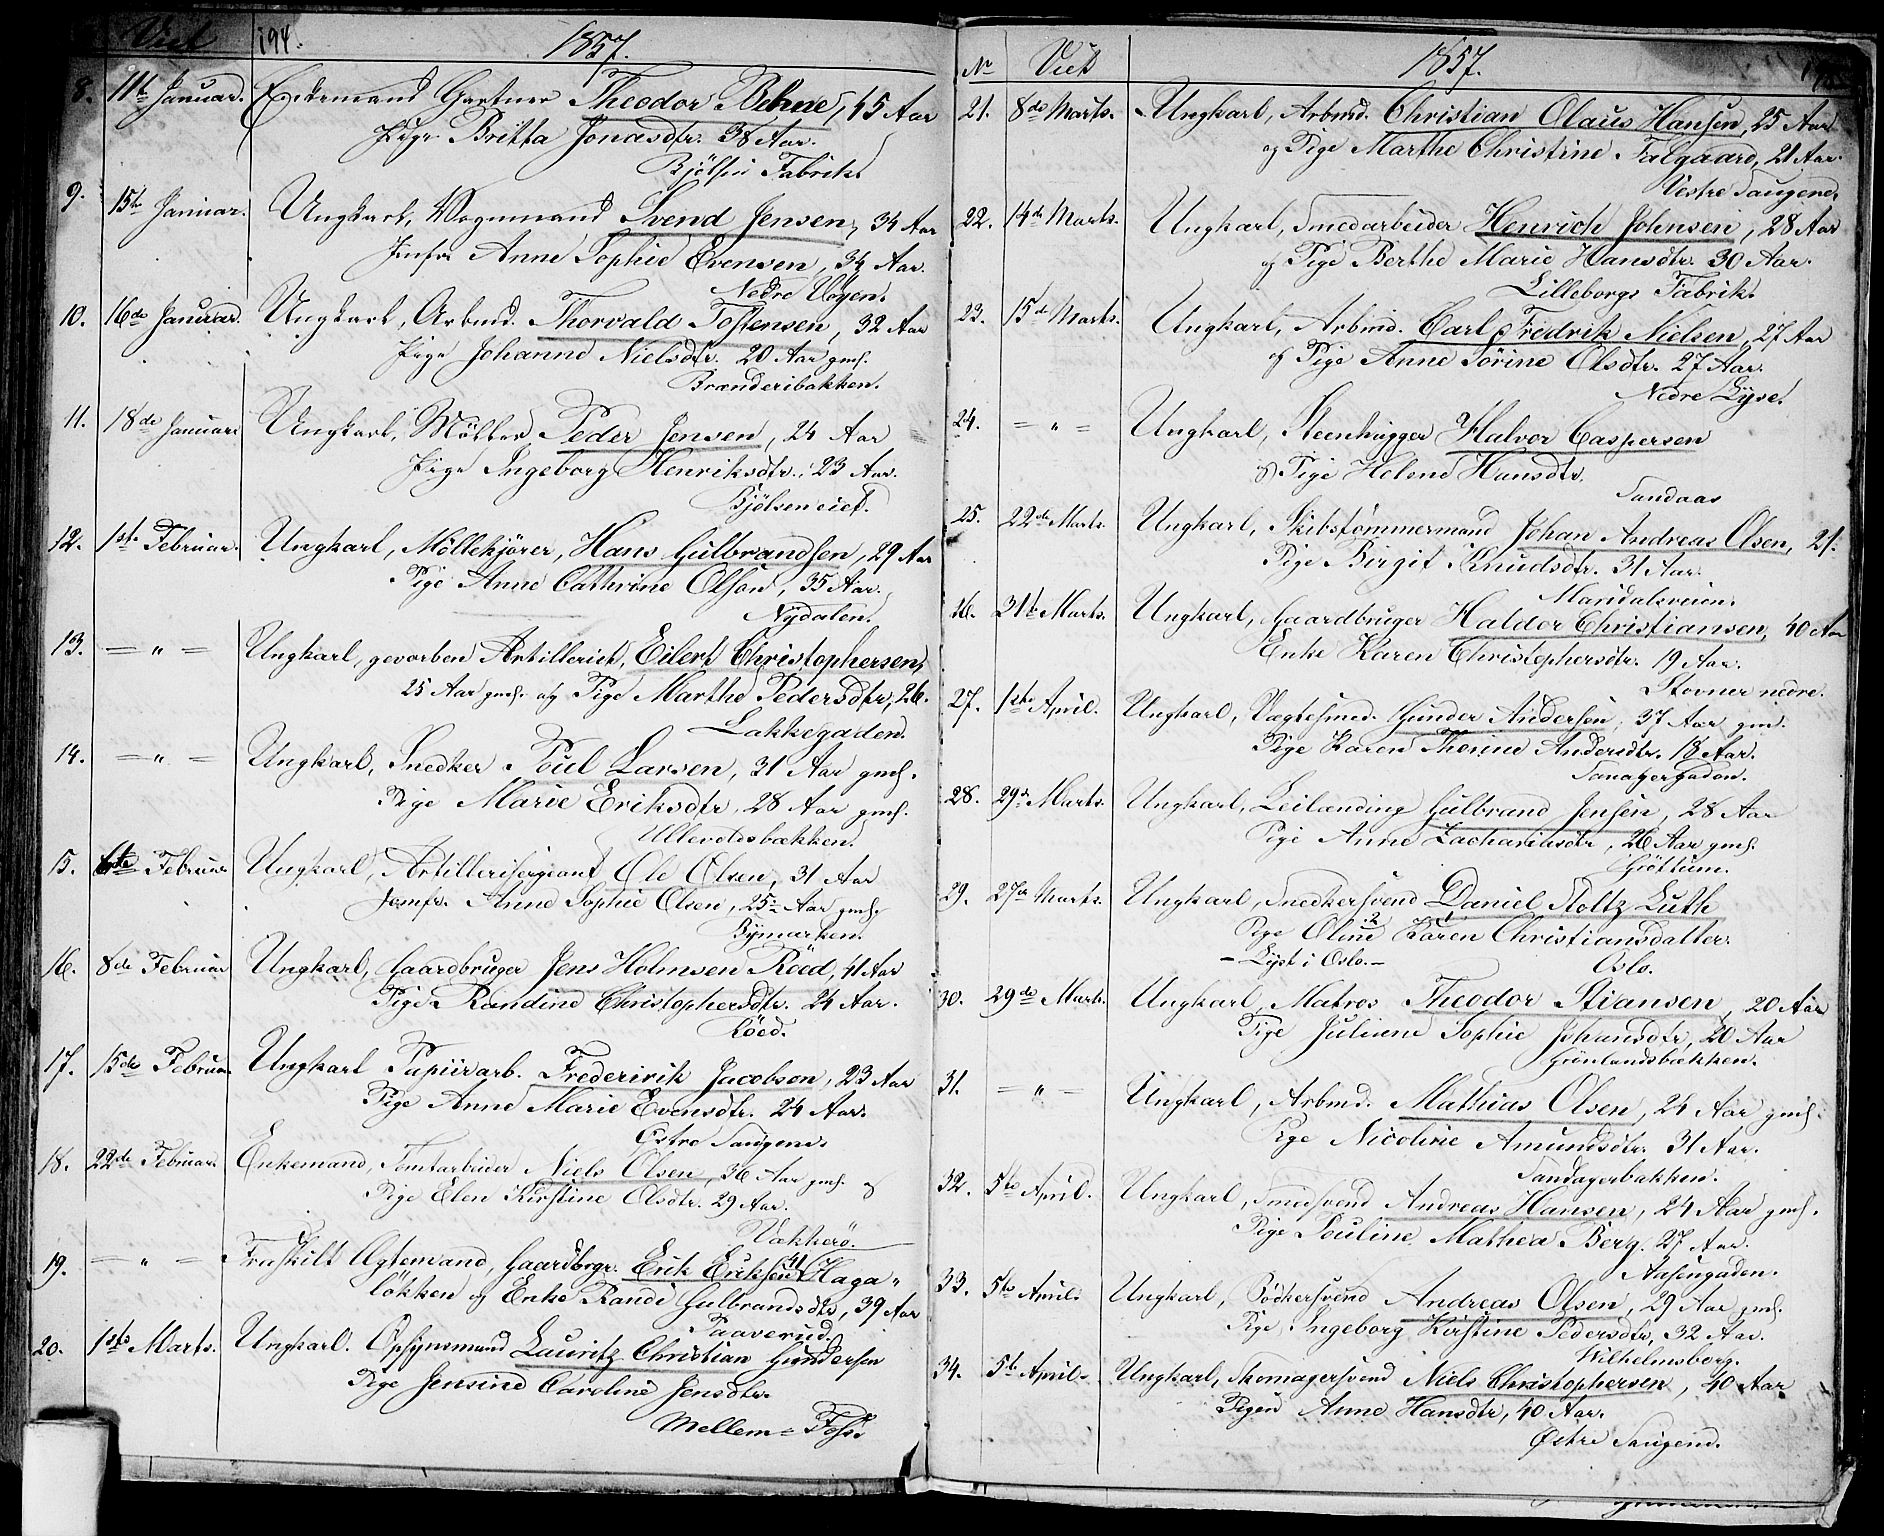 Viet 194. 1857.
8. 11te Januar. Enkemand Gartner Theodor Behne, 45 Aar
Pige Britta Jonasdtr. 38 Aar.
Bjölsen Fabrik.
9. 15de Januar. Ungkarl, Vognmand Svend Jensen, 34 Aar
Jomfr Anne Sophie Evensen, 34 Aar.
Nedre Vøyen.
10. 16de Januar. Ungkarl, Arbmd. Thorvald Tostensen, 32 Aar
Pige Johanne Nielsdtr. 20 Aar gml.
Brænderibakken.
11. 18de Januar Ungkarl, Möller Peder Jensen, 24 Aar
Pige Ingeborg Henriksdtr. 23 Aar.
Bjölseneiet.
12. 1ste Februar. Ungkarl, Möllekjörer, Hans Gulbrandsen, 29 Aar
Pige Anne Cathrine Olsen, 35 Aar.
Nydalen.
13. — " — Ungkarl, gevorben Artillerist, Eilert Christophersen,
25 Aar gml. og Pige Marthe Pedersdtr, 26.
Lakkegaden.
14. — " — Ungkarl, Snedker Poul Larsen, 31 Aar gml.
Pige Marie Eriksdtr, 28 Aar gml.
Ullevoldsbækken.
15. 6te Februar Ungkarl, Artillerisergeant Ole Olsen, 31 Aar
Jomfr. Anne Sophie Olsen, 25 Aar gml.
Bymarken.
16. 8de Februar Ungkarl, Gaardbruger Jens Holmsen Röed, 41 Aar
Pige Randine Christophersdtr. 24 Aar.
Röed.
17. 15de Februar. Ungkarl Papiirarb. Frederivik Jacobsen, 23 Aar
Pige Anne Marie Evensdtr. 24 Aar.
Østre Saugene.
18. 22de Februar. Enkemand, Tomtarbeider Niels Olsen, 36 Aar gml. og
Pige Elen Kirstine Olsdtr. 29 Aar.
Vækkerö.
19. — " — Fraskilt Ægtemand, Gaardbrgr. Erik Eriksen 41 Haga-
lökken og Enke Randi Gulbrandsdtr, 39 Aar
Paaverud.
20. 1ste Marts. Ungkarl. Opsynsmand Lauritz Christian Gundersen
Pige Jensine Caroline Jensdtr.
Mellem = Foss
No Viet 1857.
21. 8de Marts. Ungkarl, Arbmd. Christian Olaus Hansen, 25 Aar
og Pige Marthe Christine Falgaard, 21 Aar.
Vestre Saugene.
22. 14de Marts. Ungkarl, Smedarbeider Henrich Johnsen, 28 Aar
og Pige Berthe Marie Hansdtr. 30 Aar.
Lilleborgs Fabrik.
23. 15de Marts. Ungkarl, Arbmd. Carl Fredrik Nielsen, 27 Aar
og Pige Anne Sörine Olsdtr. 27 Aar.
Nedre Lyse.
24. = " = Ungkarl, Steenhugger Halvor Caspersen
og Pige Helene Hansdtr.
Sandaas
25. 22de Marts. Ungkarl, Skibstömmermand Johan Andreas Olsen, 21.
Pige Birgit Knudsdtr. 31 Aar.
Maridalsveien.
26. 31te Marts. Ungkarl, Gaardbruger Haldor Christiansen, 40 Aar
Enke Karen Christophersdtr. 19 Aar.
Stovner nedre.
27. 1ste April. Ungkarl, Vægtersmed. Gunder Andersen, 37 Aar gml.
Pige Karen Thorine Andersdtr. 18 Aar.
28. 29de Marts. Ungkarl, Leilænding Gulbrand Jensen, 28 Aar
Pige Anne Zachariasdtr, 26 Aar gml.
Gröttum.
29. 27de Marts. Ungkarl, Snedkersvend Daniel Stoltz Luth
Pige Oline 2 Karen 1 Christiansdatter.
— Lyst i Oslo. — Oslo.
30. 29de Marts. Ungkarl, Matros Theodor Stiansen, 20 Aar
Pige Juliane Sophie Johansdtr, 20 Aar
Grönlandsbækken.
31. — " — Ungkarl, Arbmd. Mathias Olsen, 24 Aar gml.
Pige Nicoline Amundsdtr. 31 Aar.
Sandagerbakken.
32. 5te April. Ungkarl, Smedsvend Andreas Hansen, 24 Aar gml.
Pige Pouline Mathea Berg. 27 Aar.
Aasengaden.
33. 5te April. Ungkarl, Bödkersvend Andreas Olsen, 29 Aar gml.
Pige Ingeborg Kirstine Pedersdtr, 32 Aar.
Wilhelmsborg.
34. 5te April. Ungkarl, Skomagersvend Niels Christophersen, 40 Aar
Pigen Anne Hansdtr, 40 Aar.
Østre Saugene.